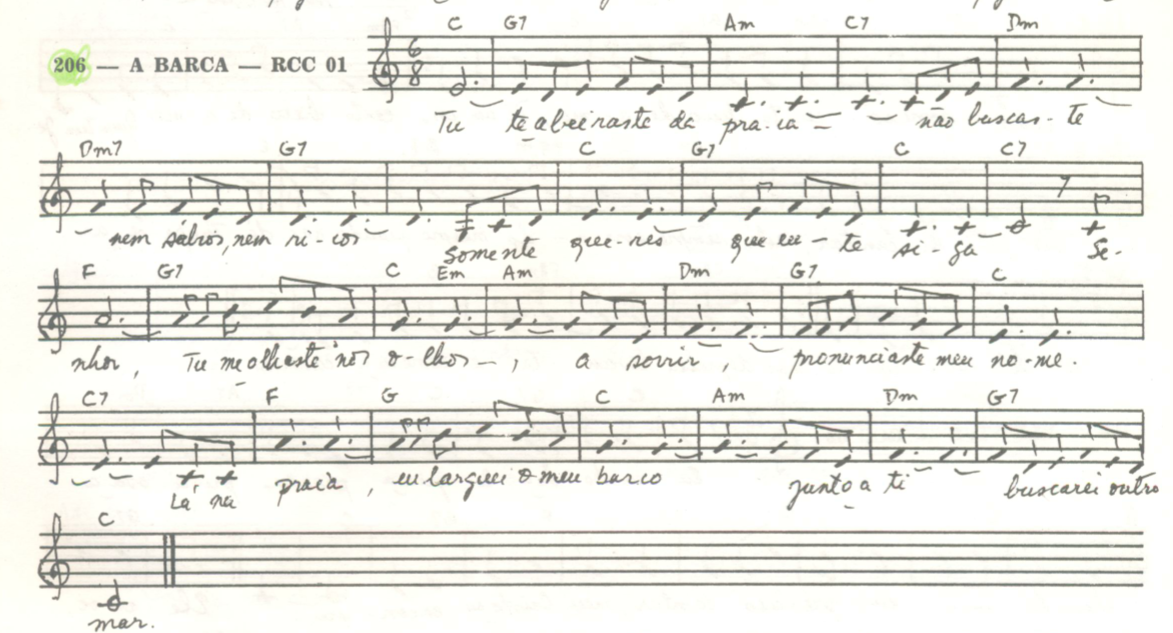 C G7 Am C7 Dm
206 — A BARCA — RCC 01
6
8
Tu te abeiraste da pra-ia — não buscas-te
Dm7 G7 C G7 C C7
nem sábios, nem ri-cos Somente que-res que eu-te si-ga Se-
F G7 C Em Am Dm G7 C
nhor, Tu me olhaste nos o-lhos—, a sorrir, pronunciaste meu no-me.
C7 F G C Am Dm G7
Lá na praia, eu larguei o meu barco junto a ti buscarei outro
C
mar.